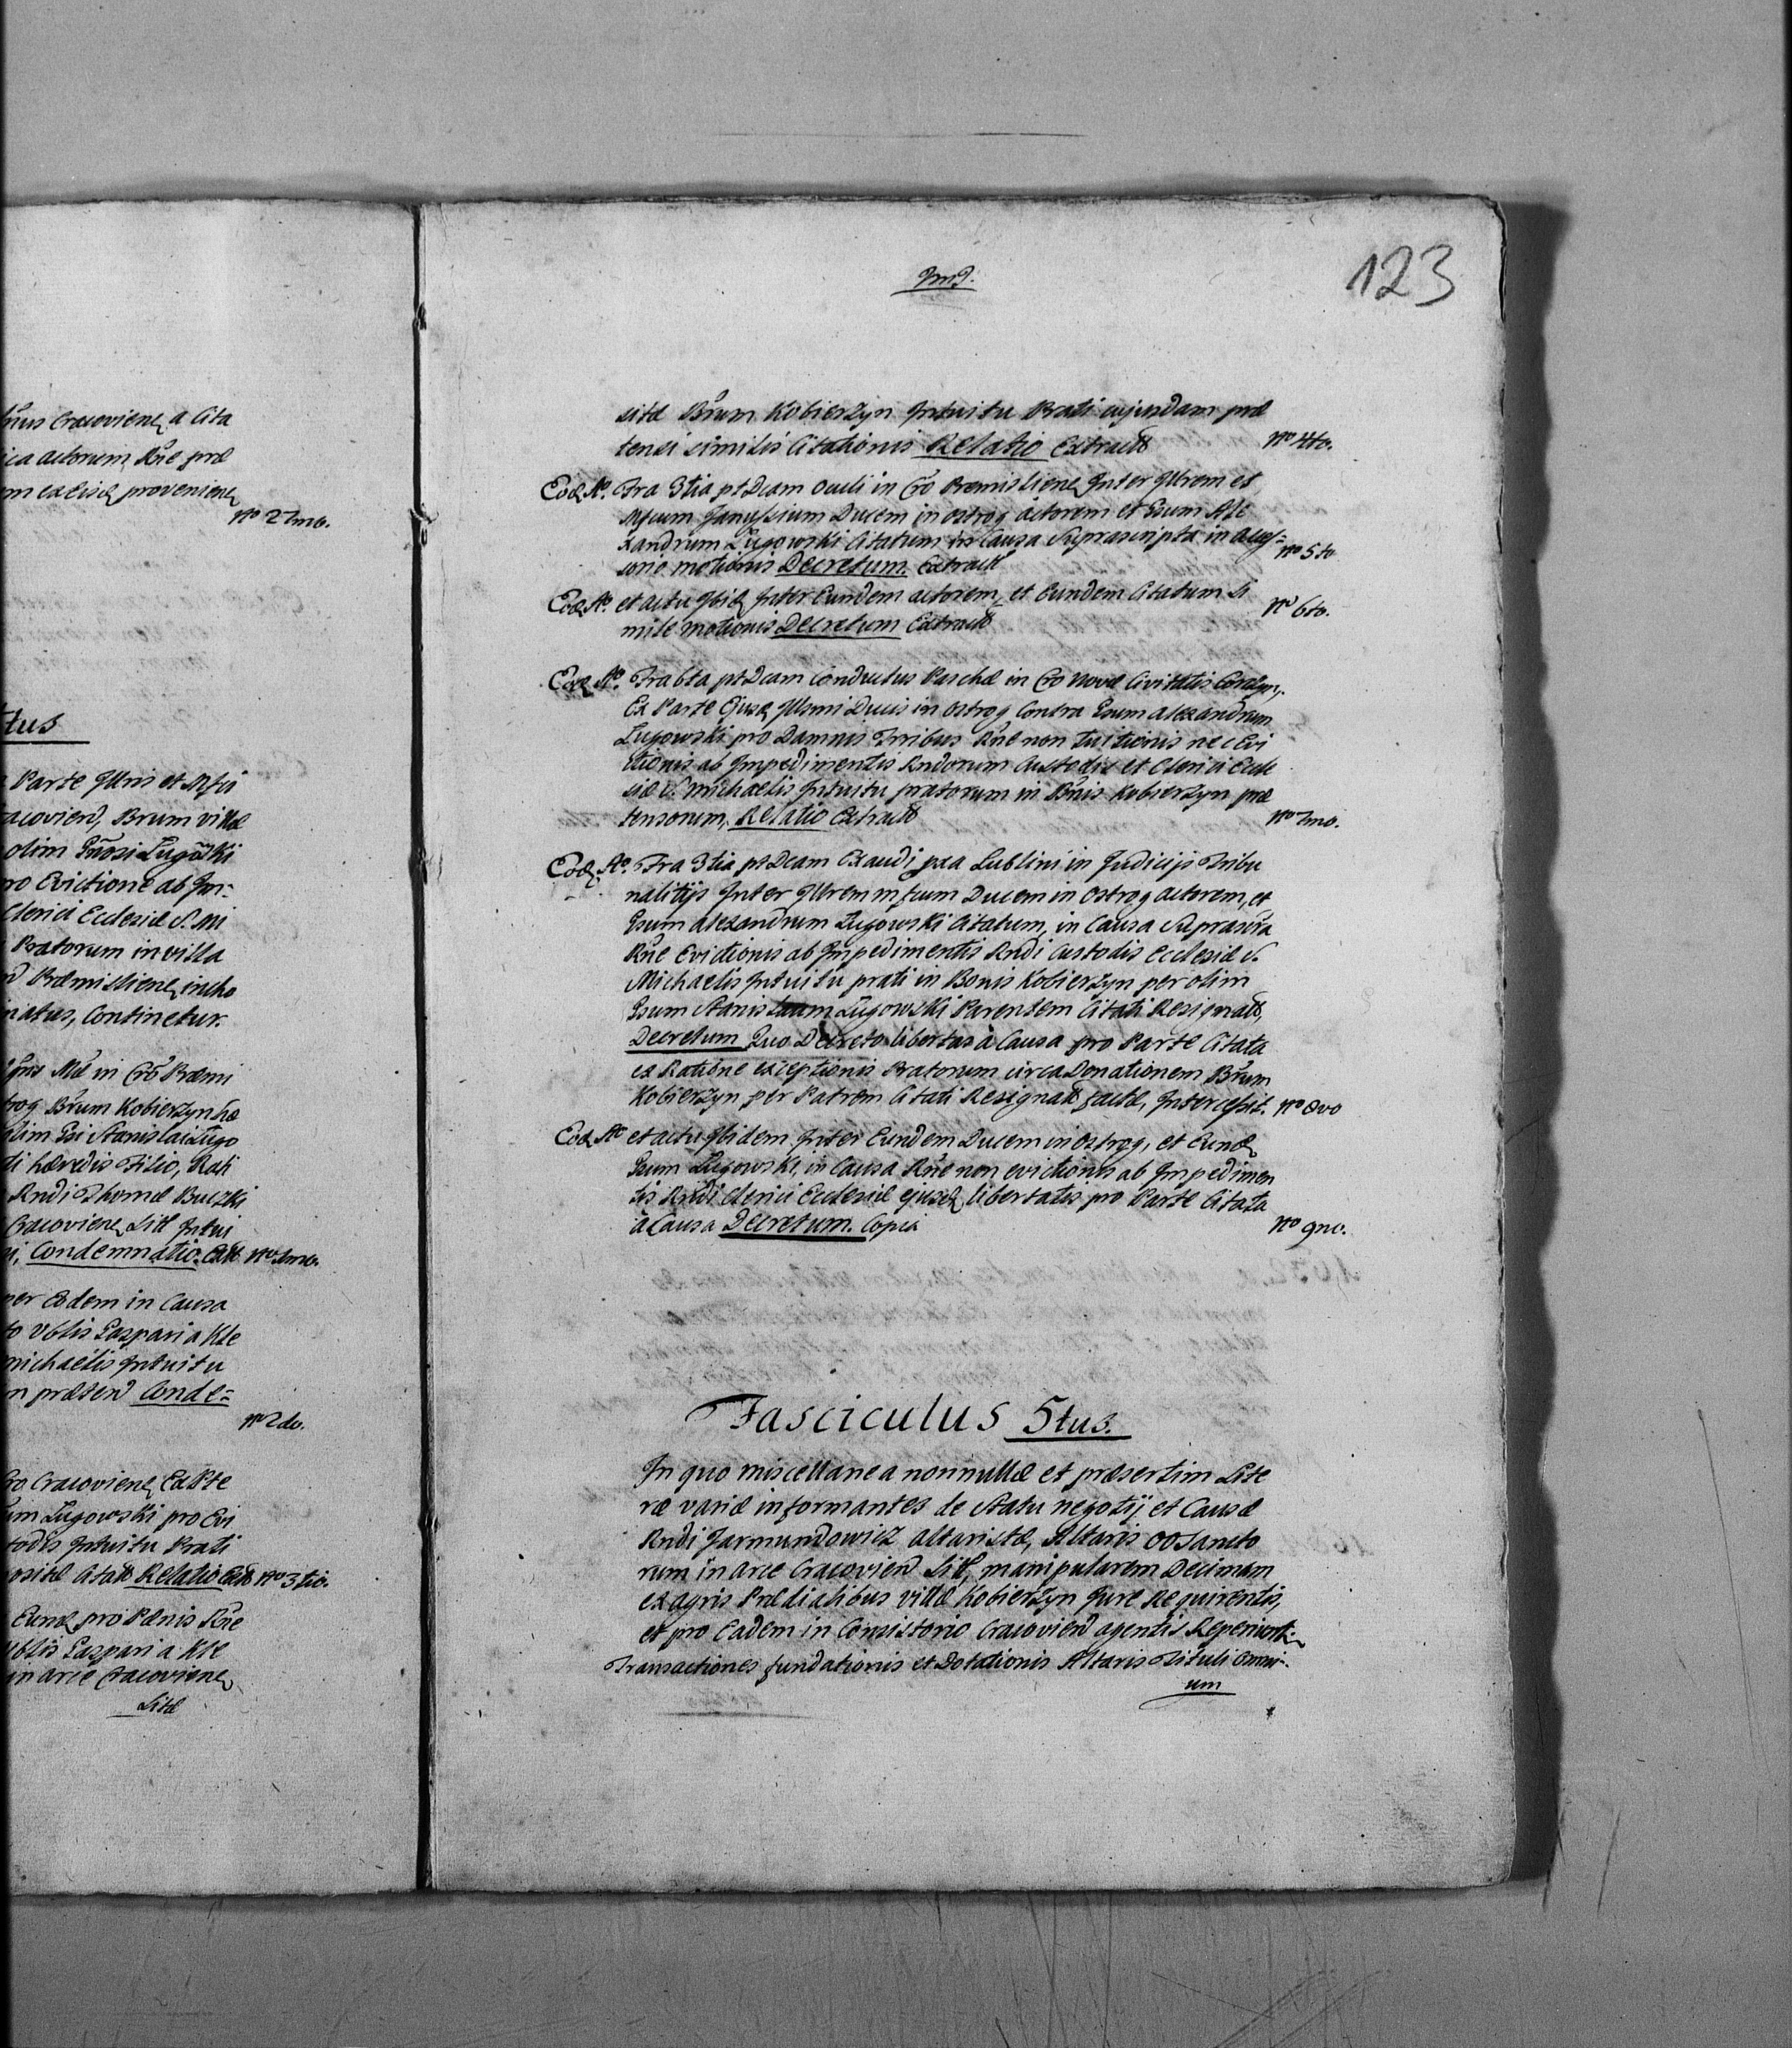 nus Cracovienẽ, a Cita
ica actorum Rñe præ
m ex eisdẽ provenienẽ
No 27mo.
tus
Parte Illris et Mfci
racovien̄, Brum villæ
olim Gñosi Lugowski
ro Evictione ab Im:
Clerici Ecclesiæ S. Mi
Pratorum in villa
Præmislienẽ, incho
natus, Continetur.
in Cro Præmi
trog Brum Kobierzyn hæ
olim Gsi Stanislai Lugo
ti hæredis Filio, Rati
Rndi Thomæ Buczki
Cracovienẽ Sitæ Intui
i, Condemnatio. Extr̃ No 1mo.
per Eodem in Causa
to Vblis Gaspari a Kle
michaelis Intuitu
m prætensæ Conde=
No 2do.
Cro Cracovienẽ, Ex Pte
um Lugowski pro Evi
todis Intuitu Prati
ositæ Citatõ Relatio Extr̃ No 3tio.
Eundẽ pro Pænis Rñe
Vblis Gaspari a Kle
in arce Cracovienẽ,
Sitæ
123
sitæ Brum Kobierzyn Intuitu Prati cujusdam præ
tensi similis Citationis Relatio Extractõ No 4to.
Eodẽ Ao. Fra 3tia pt Dcam Oculi in Cro Premislienẽ Inter Illrem et
Mfcum Janussium Ducem in Ostrog actorem et Gsum Ale
xandrum Lugowski Citatum in Causa Suprascripta in acces=
sorio motionis Decretum. Extractõ No 5to
Eodẽ Ao. et actu Ibidẽ Inter Eundem actorem, et Eundem Citatum Si
mile motionis Decretum Extractõ No 6to.
Eodẽ Ao. Fra 6ta pt Dcam Conductus Paschæ in Cro Novæ Civitatis Corczyn,
Ex Parte Ejusdẽ Illsmi Ducis in Ostrog Contra Gsum Alexandrum
Lugowski pro Damnis Irribus Rñe non tuitionis nec Evi
ctionis ab Impedimentis Rndorum Custodis et Clerici Eccle
siæ S. Michaelis Intuitu pratorum in Bnis Kobierzyn præ
tensorum, Relatio Extractõ No 7mo.
Eodẽ Ao. Fra 3tia pt Dcam Exaudi pxa Lublini in Judicijs Tribu
nalitijs Inter Illrem Mfcum Ducem in Ostrog actorem, et
Gsum Alexandrum Lugowski Citatum, in Causa Suprascra
Rñe Evictionis ab Impedimentis Rndi Custodis Ecclesiæ S.
Michaelis Intuitu prati in Bonis Kobierzyn per olim
Gsum Stanislaum Lugowski Parentem Citati Resignatõ,
Decretum Quo Decreto libertas à Causa pro Parte Citata
ex Ratione exceptionis Pratorum circa Donationem Brum
Kobierzyn, per Patrem Citati Resignatõ factæ, Intercessit. No 8vo
Eodẽ Ao et actu Ibidem Inter Eundem Ducem in Ostrog, et Eundẽ
Gsum Lugowski, in Causa Rñe non evictionis ab Impedimen
tis Rndi Clerici Ecclesiæ ejusdẽ, libertatis pro Parte Citata
à Causa Decretum. Copia No 9no.
Fasciculus 5tus.
In quo miscellanea nonnullæ et præsertim Lite
ræ variæ informantes de Statu negotij et Causæ
Rndi Jarmundowicz altaristæ, Altaris OO Sancto
rum in arce Cracovien̄ Sitĩ, manipularem Decimam
ex agris Prædialibus villæ Kobierzyn Jure Requirentis,
et pro Eadem in Consistorio Cracovien̄ agentis Reperiunt:
Transactiones fundationis et Dotationis Altaris Tituli Omni:
um